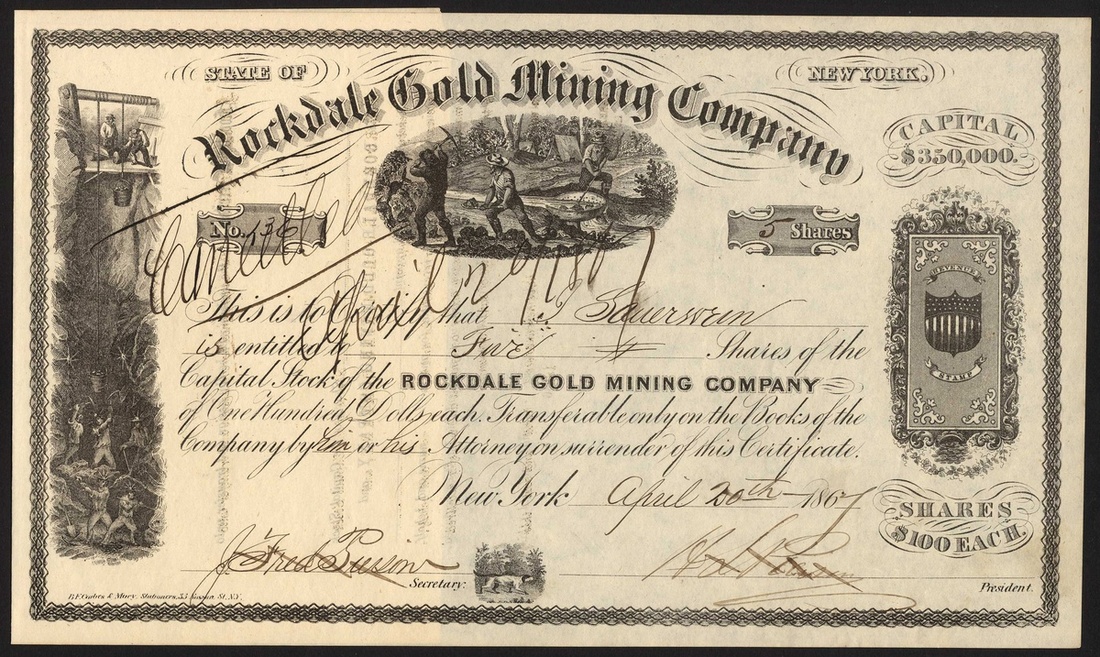 STATE OF NEW YORK,
Rockdale Gold Mining Company
CAPITAL
$350,000.
No. 136
5 Shares
Cancelled
April 1867
REVENUE
STAMP
This is to Certify that J Sauerwein
is entitled to Five Shares of the
Capital Stock of the ROCKDALE GOLD MINING COMPANY
of One Hundred Dolls. each. Transferable only on the Books of the
Company by him or his Attorney on surrender of this Certificate.
New York April 20th 1867
SHARES
$100 EACH.
J. Fred
Secretary.
President.
& Macy. Stationers, 55 Nassau St. N.Y.